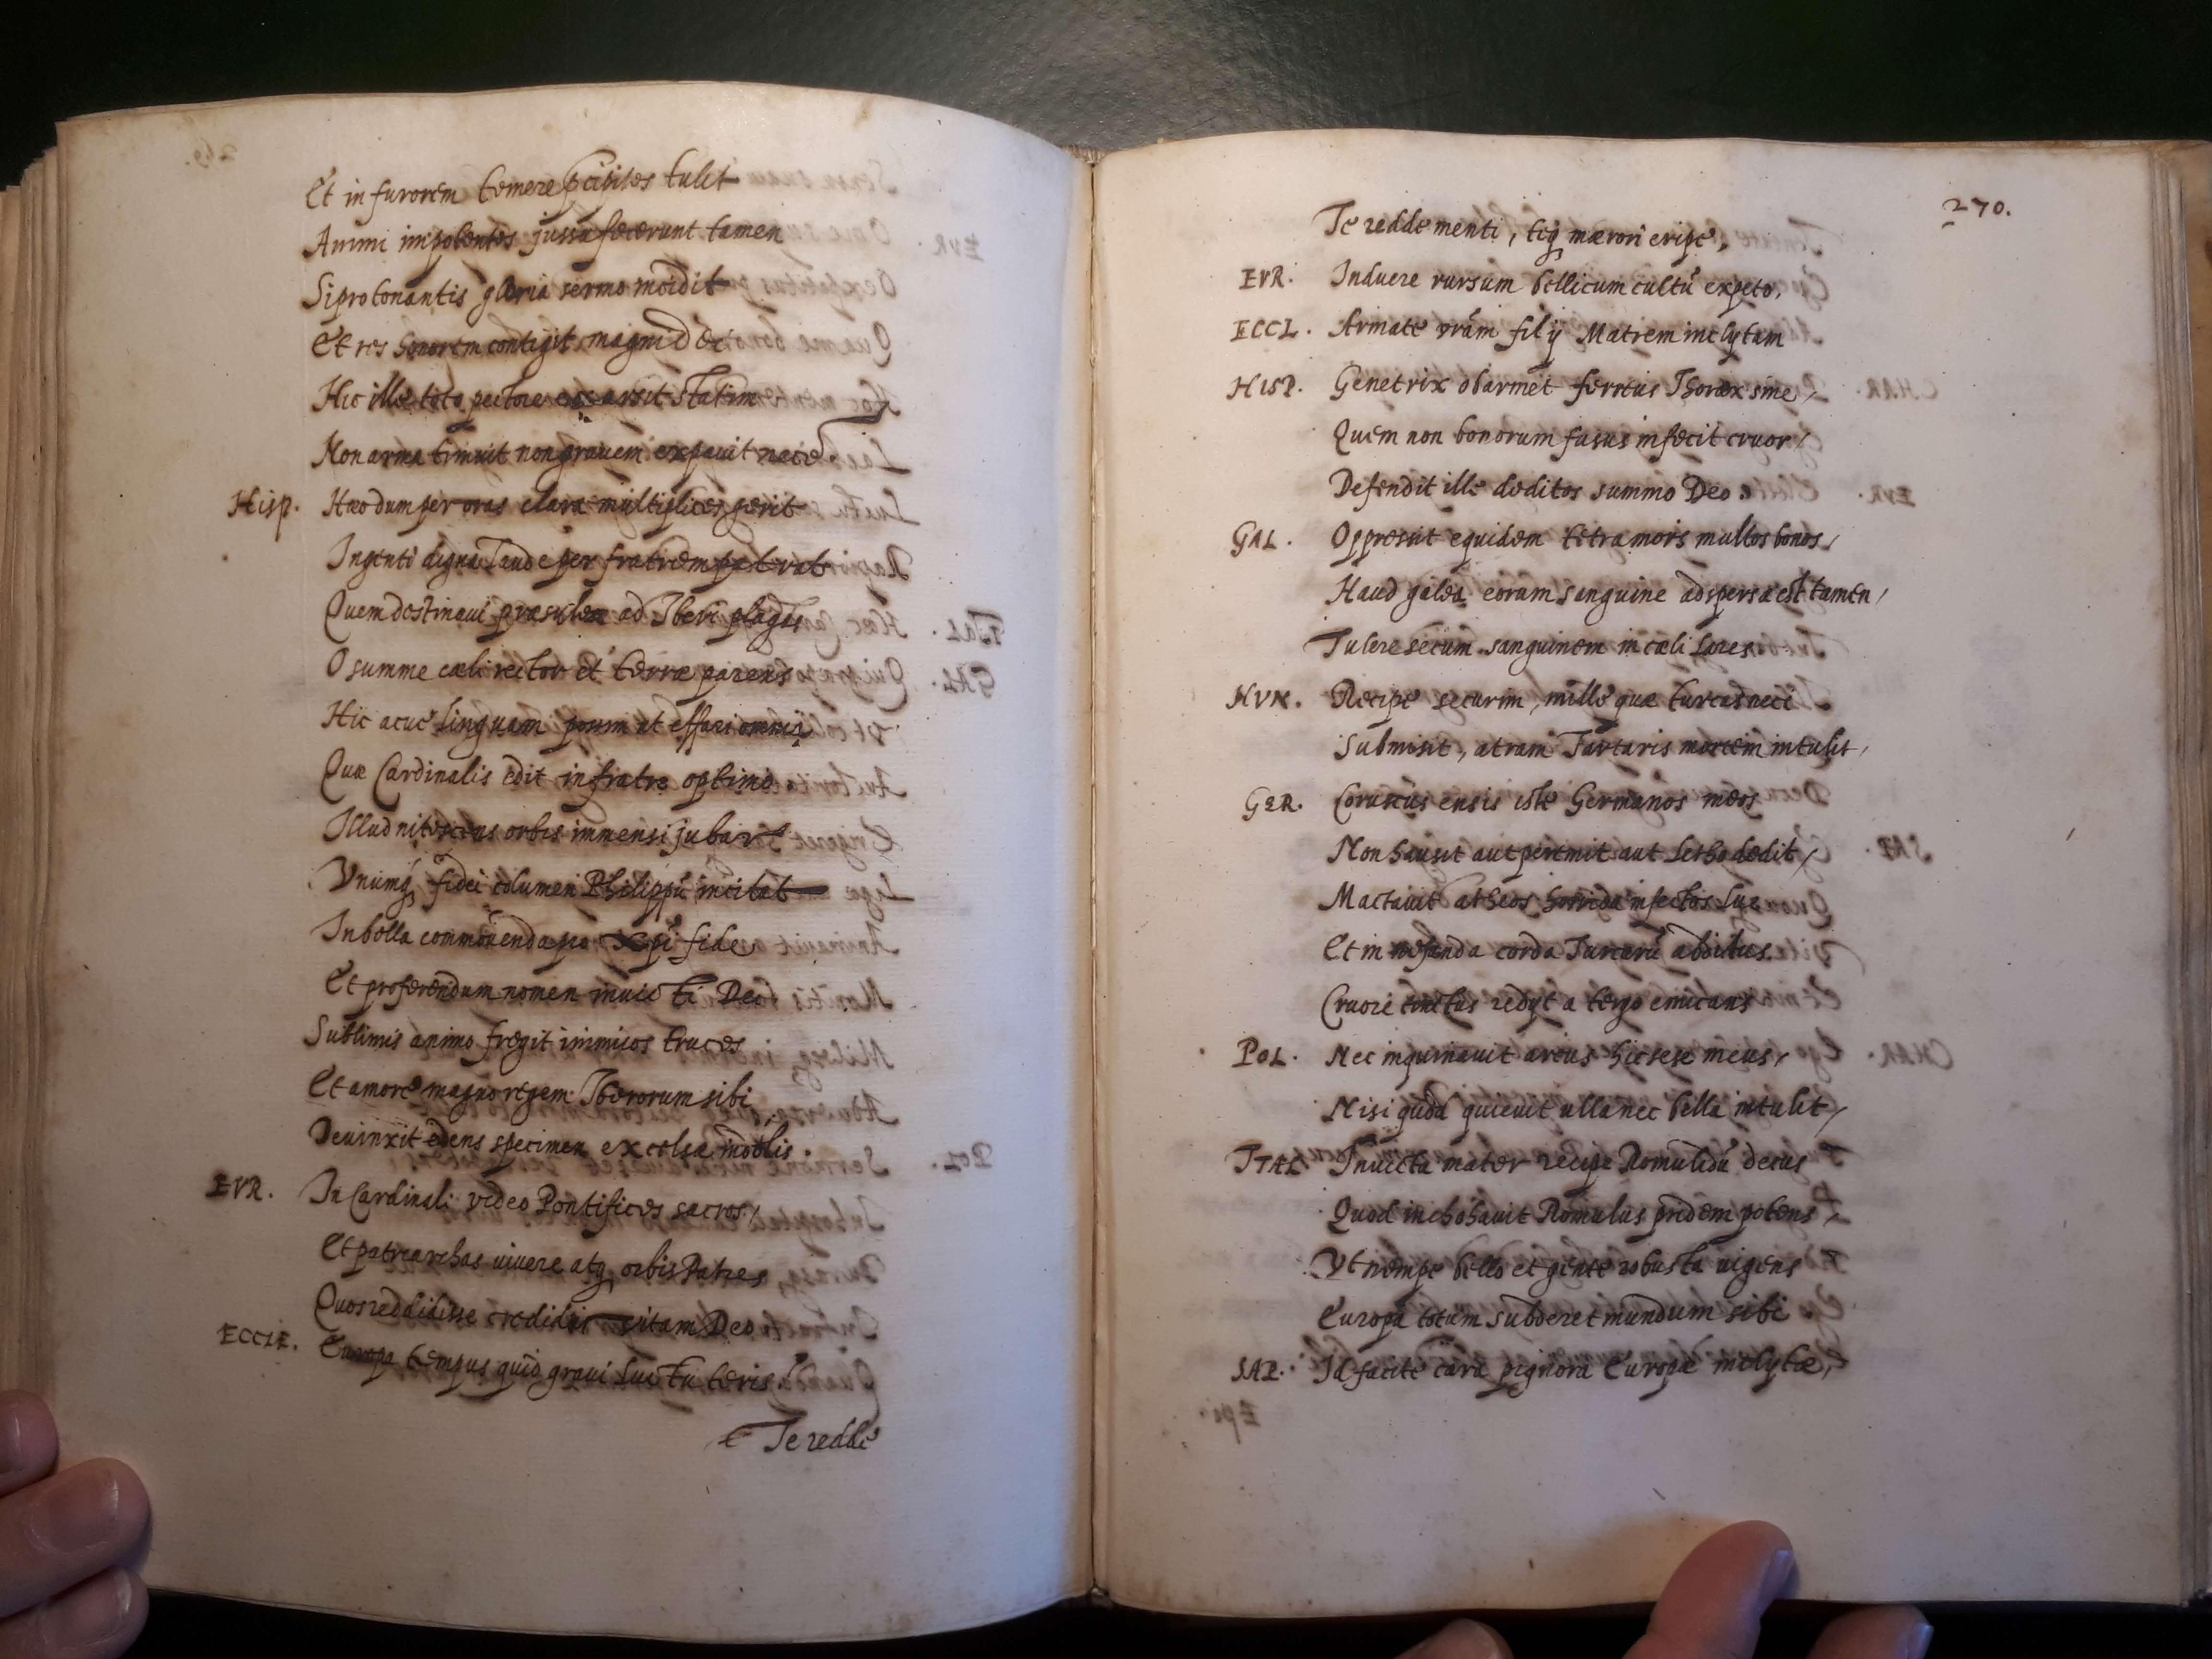 Et in furorem temere pcipites tulit
Animi impotentes jussa fecerunt tamen
Si pro tonantis gloria sermo incidit
Et res honorem contigit magni dei
Hic ille toto pectore exarsit statim
Non arma timuit non gravem expavit necē
Hisp. Haec dum per oras clara multiplices gerit
Ingenti digna laude per fratrem patrat
Quem destinavi praesulem ad Iberi plagas
O summe caeli rector et terrae parens
Hic acue linguam possim ut effari omnia
Quae Cardinalis edit in fratre optimo
Illud nitescens orbis immensi jubar
Vnumq fidei columen Philippū incitat
In bella commovenda pro Xpi fide
Et proferendum nomen invicti Dei
Sublimis animo fregit inimicos truces
Et amore magno regem Iberorum sibi
Devinxit edens specimen excelsae indolis.
EVR. In Cardinali video Pontifices sacros,
Et patriarchas vivere atq orbis Patres
Quos reddidisse credidi vitam Deo
ECCLE. Europa tempus quid gravi luctu teris
Te redde
270.
Te redde menti, teq maerori eripe,
EVR. Induere rursum bellicum cultū expeto,
ECCL. Armate vrām filij Matrem inclytam
HISP. Genetrix obarmet ferreus Thorax sine,
Quem non bonorum fusus infecit cruor,
Defendit ille deditos summo Deo.
GAL. Oppressit equidem tetra mors multos bonos,
Haud galea eorum sanguine adspersa est tamen,
Tulere secum sanguinem in caeli Lares.
HVN. Recipe securim, mille quae turcas neci
Submisit, atram Tartaris mortem intulit,
GER. Coruscus ensis iste Germanos meos
Non hausit aut peremit aut Letho dedit,
Mactavit atheos horrida infectos lue
Et in nefanda corda Turcarū abditus
Cruore tinctus redijt a tergo emicans
POL. Nec inquinavit arcus hic sese meus,
Nisi quod quievit ulla nec bella intulit,
ITAL Invicta mater recipe Romulidū decus
Quod inchohavit Romulus pridem potens,
Vt nempe bello et gente robusta vigens
Europa totum subderet mundum sibi
SAP. Id facite cara pignora Europae inclytae,